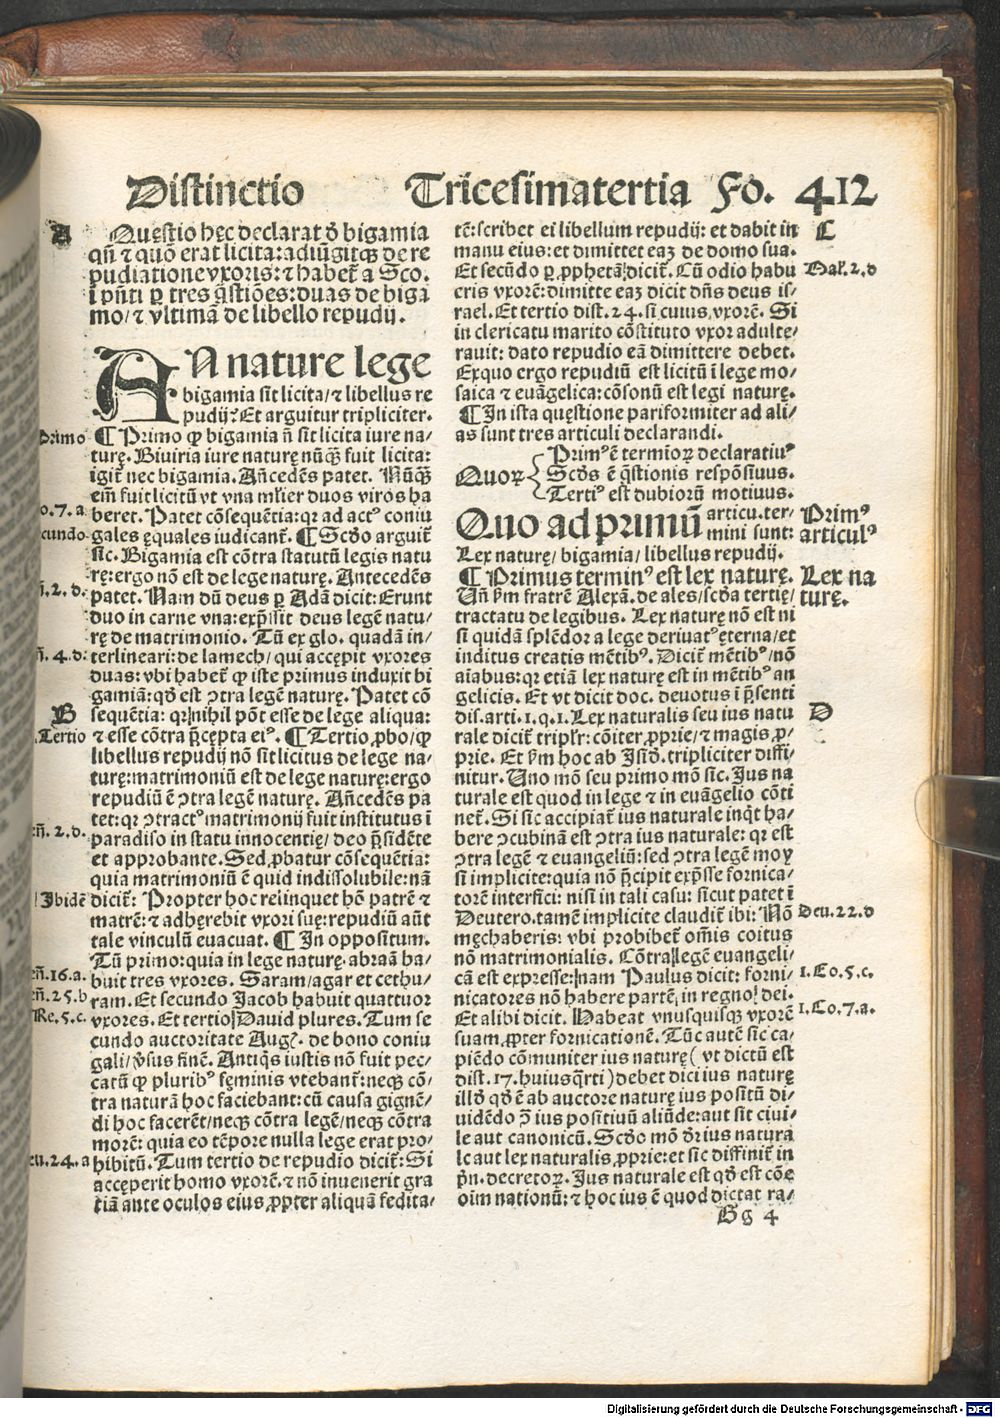 Distinctio Tricesimatertia Fo. 412
A
Quęstio hęc declarat ꝺ̄ bigamia
qn̄ ⁊ quō erat licita: adiūgitꝗꝫ de re
pudiatione vxoris: ⁊ habet̄ a Sco.
i pn̄ti ꝑ tres q̄stiōes: duas de biga
mo/ ⁊ vltimā de libello repudij.
AN nature lege
bigamia sit licita/ ⁊ libellus re
pudij? Et arguitur tripliciter.
Primo
¶ Primo ꝙ bigamia n̄ sit licita iure na/
turę. Biuiria iure naturę nūꝗꝫ fuit licita:
igit̄ nec bigamia. Añcedēs patet. Nūꝗꝫ
em̄ fuit licitū vt vna mł̄ier duos viros ha
o. 7. a
beret. Patet cōsequētia: qꝛ ad actꝰ coniu
cundo
gales ęquales iudicant̄. ¶ Scḋo arguit̄
sic. Bigamia est cōtra statutū legis natu
rę: ergo nō est de lege naturę. Antecedēs
ñ. 2. d.
patet. Nam dū deus ꝑ Adā dicit: Erunt
duo in carne vna: exp̄ssit deus legē natu/
rę de matrimonio. Tū ex glo. quadā in/
ñ. 4. d:
terlineari: de lamech/ qui accępit vxores
duas: vbi habet̄ ꝙ iste primus induxit bi
gamiā: qḋ est ꝯtra legē naturę. Patet cō
B
sequētia: qꝛ nihil pōt esse de lege aliqua:
.Tertio
⁊ esse cōtra p̄cepta eiꝰ. ¶ Tertio ꝓbo/ ꝙ
libellus repudij nō sit licitus de lege na/
turę: matrimoniū est de lege naturę: ergo
repudiū ē ꝯtra legē naturę. Añcedēs pa
tet: qꝛ ꝯtractꝰ matrimonij fuit institutus ī
ñ. 2. d.
paradiso in statu innocentię/ deo p̄sidēte
et approbante. Sed ꝓbatur cōsequētia:
quia matrimoniū ē quid indissolubile: nā
Ibidē
dicit̄: Propter hoc relinquet hō patrē ⁊
matrē: ⁊ adhęrebit vxori suę: repudiū aūt
tale vinculū euacuat. ¶ In oppositum.
Tū primo: quia in lege naturę abraā ha/
eñ. 16. a.
buit tres vxores. Saram/ agar et cethu/
eñ. 25. b
ram. Et secundo Jacob habuit quattuor
Re. 5. c.
vxores. Et tertio David plures. Tum se
cundo auctoritate Aug. de bono coniu
gali/ v̄sus finē. Antiꝗs iustis nō fuit pec/
catū ꝙ pluribꝰ fęminis vtebant̄: neꝗꝫ cō/
tra naturā hoc faciebant: cū causa gignē/
di hoc facerēt/ neꝗꝫ cōtra legē/ neꝗꝫ cōtra
morē: quia eo tēpore nulla lege erat pro/
eu. 24. a
hibitū. Tum tertio de repudio dicit̄: Si
accęperit homo vxorē ⁊ nō inuenerit gra
tiā ante oculos eius ꝓpter aliquā fedita/
tē: scribet ei libellum repudij: et dabit in
C
manu eius: et dimittet eaꝫ de domo sua.
Et secūdo ꝑ ꝓphetā dicit̄. Cū odio habu
Mal. 2. d
eris vxorē: dimitte eaꝫ dicit dn̄s deus is/
rael. Et tertio dist. 24. si cuius vxorē. Si
in clericatu marito cōstituto vxor adulte/
rauit: dato repudio eā dimittere debet.
Exquo ergo repudiū est licitū ī lege mo/
saica ⁊ euāgelica: cōsonū est legi naturę.
¶ In ista quęstione pariformiter ad ali/
as sunt tres articuli declarandi.
Primꝰ ē termioꝝ declaratiuꝰ
Quoꝝ Scḋs ē q̄stionis respōsiuus.
Tertiꝰ est dubiorū motiuus.
Quo ad primū articu. ter/
mini sunt:
Primꝰ
articulꝰ
Lex naturę/ bigamia/ libellus repudij.
¶ Primus terminꝰ est lex naturę.
Lex na
turę.
Uñ ẜm fratrē Alexā. de ales/ scḋa tertię/
tractatu de legibus. Lex naturę nō est ni
si quidā splēdor a lege deriuatꝰ ęterna/ et
inditus creatis mētibꝰ. Dicit̄ mētibꝰ/ nō
aīabus: qꝛ etiā lex naturę est in mētibꝰ an
gelicis. Et vt dicit doc. deuotus ī p̄senti
dis. arti. 1. q. 1. Lex naturalis seu ius natu
D
rale dicit̄ tripłr: cōiter/ ꝓprie/ ⁊ magis ꝓ/
prie. Et ẜm hoc ab Isiḋ. tripliciter diffi/
nitur. Uno mō seu primo mō sic. Jus na
turale est quod in lege ⁊ in euāgelio cōti
net̄. Si sic accipiat̄ ius naturale inꝗt ha/
bere ꝯcubinā est ꝯtra ius naturale: qꝛ est
ꝯtra legē ⁊ euangeliū: sed ꝯtra legē moy
si implicite: quia nō p̄cipit exp̄sse fornica/
torē interfici: nisi in tali casu: sicut patet ī
Deutero. tamē implicite claudit̄ ibi: Nō
Deu. 22. d
męchaberis: vbi prohibet̄ om̄is coitus
nō matrimonialis. Cōtra legē euangeli/
cā est expresse: nam Paulus dicit: forni/
1. Co. 5. c.
nicatores nō habere partē in regno dei.
Et alibi dicit. Habeat vnusquisꝗꝫ vxorē
1. Co. 7. a.
suam ꝓpter fornicationē. Tūc autē sic ca/
piēdo cōmuniter ius naturę ( vt dictū est
dist. 17. huius q̄rti ) debet dici ius naturę
illḋ qḋ ē ab auctore naturę ius positū di/
uidēdo ꝯ̄ ius positiuū aliūde: aut sit ciui/
le aut canonicū. Scḋo mō dr̄ ius natura
le aut lex naturalis ꝓprie: et sic diffinit̄ in
pn̄. decretoꝝ. Jus naturale est qḋ est cōe
oīm nationū: ⁊ hoc ius ē quod dictat ra/
Bg 4
Digitalisierung gefördert durch die Deutsche Forschungsgemeinschaft - DFG